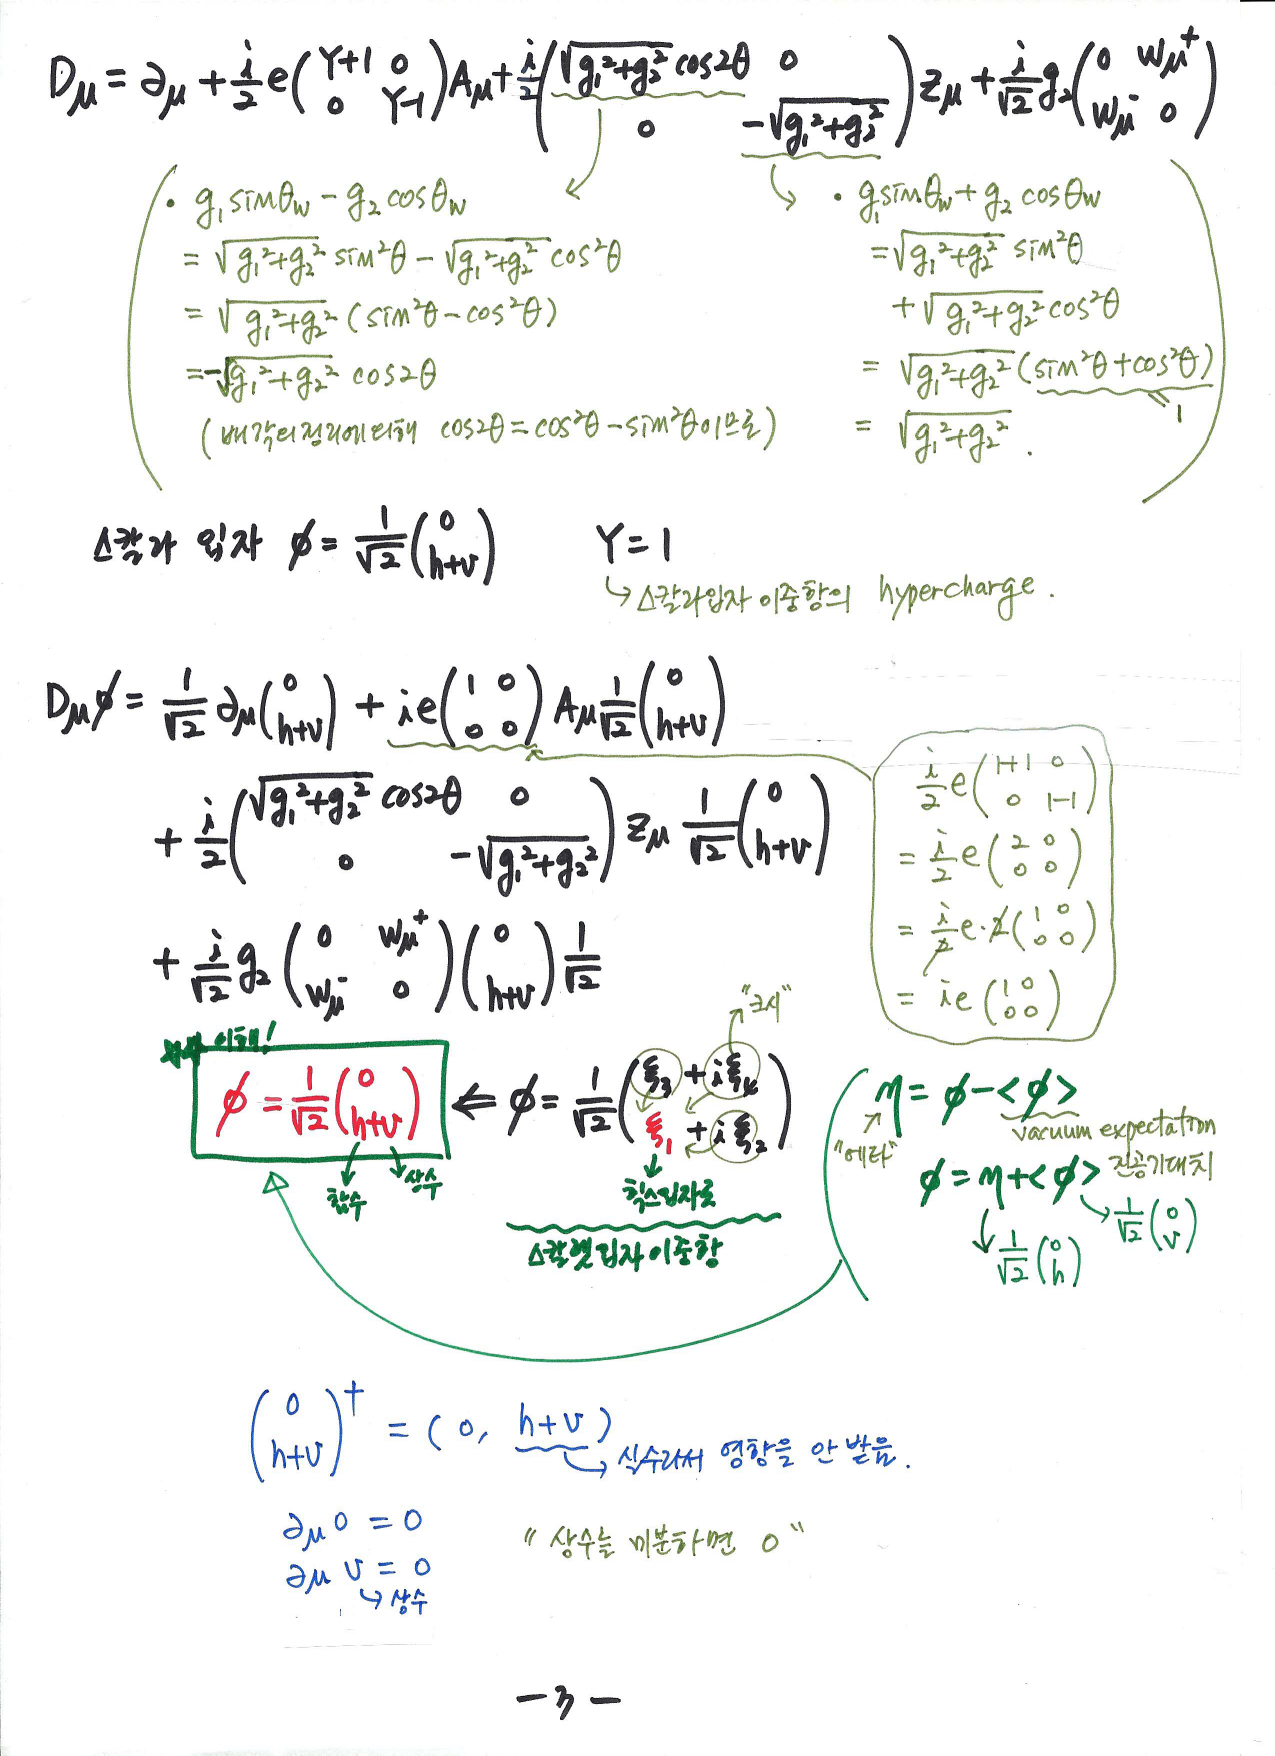 Dμ = ∂μ + i/2 e (Y+1 0 / 0 Y-1) Aμ + i/2 (√(g₁²+g₂²) cos2θ 0 / 0 -√(g₁²+g₂²)) Zμ + i/√2 g₂ (0 Wμ⁺ / Wμ⁻ 0)
· g₁ sinθw - g₂ cosθw
= √(g₁²+g₂²) sin²θ - √(g₁²+g₂²) cos²θ
= √(g₁²+g₂²) (sin²θ - cos²θ)
= -√(g₁²+g₂²) cos2θ
(배각의정리에의해 cos2θ = cos²θ - sin²θ이므로)
· g₁sinθw + g₂ cosθw
= √(g₁²+g₂²) sin²θ
+ √(g₁²+g₂²) cos²θ
= √(g₁²+g₂²) (sin²θ + cos²θ)
1
= √(g₁²+g₂²).
스칼라 입자 ϕ = 1/√2 (0 / h+v) Y = 1
↳ 스칼라입자 이중항의 hypercharge.
Dμϕ = 1/√2 ∂μ (0 / h+v) + ie (1 0 / 0 0) Aμ 1/√2 (0 / h+v)
+ i/2 (√(g₁²+g₂²) cos2θ 0 / 0 -√(g₁²+g₂²)) Zμ 1/√2 (0 / h+v)
+ i/√2 g₂ (0 Wμ⁺ / Wμ⁻ 0) (0 / h+v) 1/√2
i/2 e (1+1 0 / 0 1-1)
= i/2 e (2 0 / 0 0)
= i/2 e·2 (1 0 / 0 0)
= ie (1 0 / 0 0)
이해!
"크시"
ϕ = 1/√2 (0 / h+v) ⇐ ϕ = 1/√2 (ξ₃ + iξ₄ / ξ₁ + iξ₂)
함수 상수
힉스입자로
스칼렛입자이중항
η = ϕ - <ϕ>
"에타" vacuum expectation
진공기대치
ϕ = η + <ϕ>
1/√2 (0 / h) 1/√2 (0 / v)
(0 / h+v)† = (0, h+v)
→ 실수라서 영향을 안 받음.
∂μ 0 = 0
∂μ v = 0
↳ 상수
"상수를 미분하면 0"
- 3 -